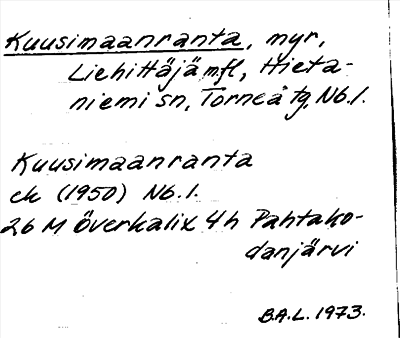 Kuusimaanranta, myr,
Liehittäjä mfl, Hieta-
niemi sn, Torneå tg, Nb.l.
Kuusimaanranta
ek (1950) Nb.l.
26 M Överkalix 4h Pahtako-
danjärvi
B.A.L. 1973.